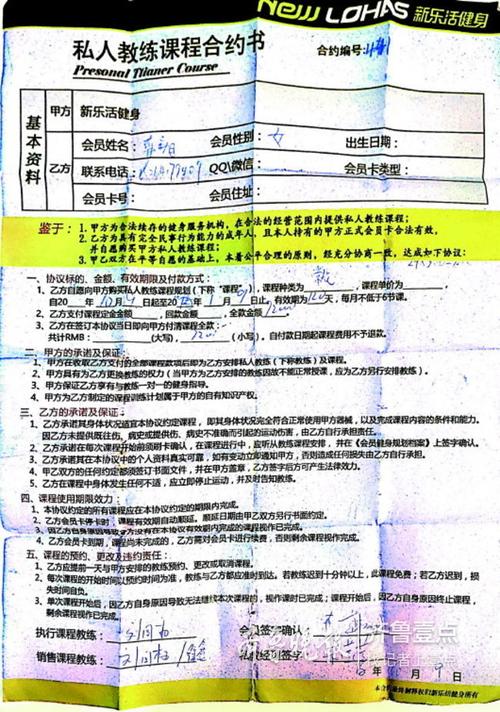 New LOHAS 新乐活健身
私人教练课程合约书 合约编号:
Presonal Tlianer Course
基本资料
甲方 新乐活健身
乙方
会员姓名: 会员性别:女 出生日期:
联系电话: QQ\微信: 会员卡类型:
会员卡号: 会员住址:
鉴于:
1. 甲方为合法续存的健身服务机构, 在合法的经营范围内提供私人教练课程;
2. 乙方为具有完全民事行为能力的成年人, 且本人持有的甲方正式会员卡合法有效,
并自愿购买甲方私人教练课程;
3. 甲乙双方在平等自愿的基础上, 本着公平合理的原则, 经充分协商一致, 达成如下协议:
一、协议标的、金额、有效期限及付款方式:
1、乙方自愿向甲方购买私人教练课程规划(下称“课程”), 课程种类为 , 课程单价为
自20 年 月 日起至20 年 1 月 日止, 有效期为120天, 每月不低于6节课。
2、乙方支付课程定金金额 回款金额 , 全款金额
3、乙方在签订本协议当日即向甲方付清课程全款:
共计RMB: (大写), (小写), 自付款日期起课程费用不予退款。
二、甲方的承诺及保证:
1、甲方在收取乙方支付的全部课程款项后即为乙方安排私人教练(下称教练)及课程。
2、甲方具有为乙方更换教练的权力(当甲方为乙方安排的教练因故不能正常授课, 应为乙方另行安排教练)。
3、甲方保证乙方享有与教练一对一的健身指导。
4、甲方为乙方制定的课程训练计划属于甲方的自有知识产权。
三、乙方的承诺及保证:
1、乙方承诺其身体状况适宜本协议约定课程, 即其身体状况完全符合正常使用甲方器械, 以及完成课程内容的条件和能力。
因乙方未提供既往伤、病史或提供伤、病史不准确而引起的运动伤害, 由乙方自行承担责任。
2、乙方承诺在每次课程开始前须刷卡确认, 在课程进行中, 应听从教练课程安排, 并在《会员健身规划档案》上签字确认。
3、乙方承诺其在本协议中的个人资料真实可靠, 如有变动立即通知甲方, 否则造成任何损失由乙方自行承担。
4、甲乙双方的任何约定都须签订书面文件, 并在甲方盖章, 乙方签字后方可产生法律效力。
5、乙方在课程中身体发生任何不适, 应立即停止运动, 并及时告知教练。
四、课程使用期限效力:
1、本协议约定的所有课程应在本协议约定的期限内完成。
2、乙方会员卡停卡时, 课程有效期自动顺延。顺延日期由甲乙双方另行书面约定。
3、因乙方自身原因导致乙方没有在本协议有效期内完成的课程视作已完成。
4、乙方会员卡到期, 课程尚未完成的, 乙方需对会员卡进行续费, 否则剩余课程视作完成。
五、课程的预约、更改及违约责任:
1、乙方应提前一天与甲方安排的教练预约、更改或取消课程。
2、每次课程的开始时间以预约时间为准, 教练与乙方都应准时到达。若教练迟到十分钟以上, 此课程免费; 若乙方迟到, 损
失时间自负。
3、单次课程开始后, 因乙方自身原因导致无法继续本次课程的, 视作课时已完成; 课程开始后, 因乙方自身原因终止课程,
剩余课程视作已完成。
执行课程教练: 会员签字确认:
销售课程教练: 签字:
齐鲁壹点
年 月 9 日
本合约最终解释权归新乐活健身所有